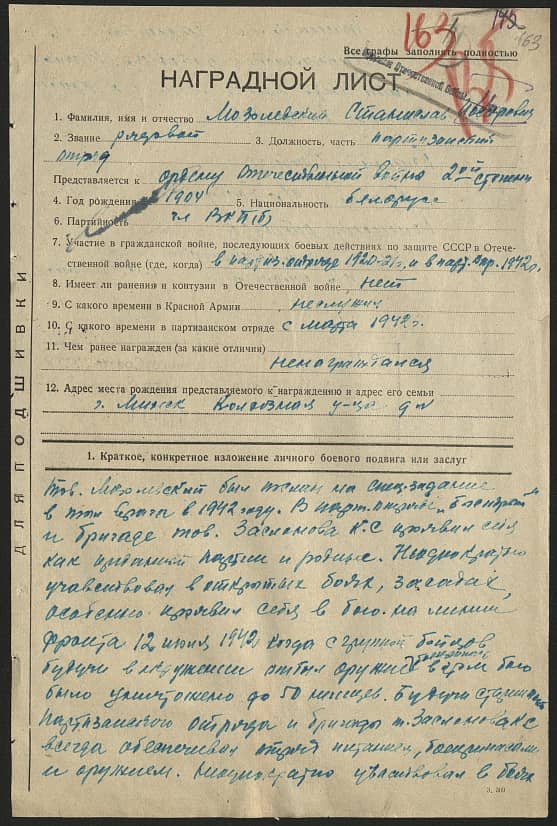 163
145
163
Все графы заполнять полностью
НАГРАДНОЙ ЛИСТ
1. Фамилия, имя и отчество Мохлевский Станислав Петрович
2. Звание рядовой 3. Должность, часть партизанский
отряд
Представляется к ордену Отечественной война 2ой степени
4. Год рождения 1904 5. Национальность белорус
6. Партийность чл ВКП(б)
7. Участие в гражданской войне, последующих боевых действиях по защите СССР в Отече-
ственной войне (где, когда) в партиз. отряде 1920-21г. и в парт. отр. 1942г.
8. Имеет ли ранения и контузии в Отечественной войне нет
9. С какого времени в Красной Армии неслужил
10. С какого времени в партизанском отряде с марта 1942г.
11. Чем ранее награжден (за какие отличия)
ненаграждался
12. Адрес места рождения представляемого к награждению и адрес его семьи
г. Минск Колхозная у-ца
ДЛЯ ПОДШИВКИ
1. Краткое, конкретное изложение личного боевого подвига или заслуг
Тов. Мохлевский был на спец. задание
в тыл врага в 1942 году. В парт. отряде
и бригаде тов. Заслонова К.С проявил себя
как преданный партии и родине. Неоднократно
учавствовал в открытых боях, засадах,
особенно проявил себя в бою на линии
фронта 12 июля 1942 когда с группой бойцов
будучи в окружении отбил оружие в этом бою
было уничтожено до 50 немцев. Будучи
партизанского отряда и бригады т. Заслонова КС
всегда обеспечивал отряд питанием, боеприпасами
и оружием. Неоднократно учавствовал в боях
З. 30